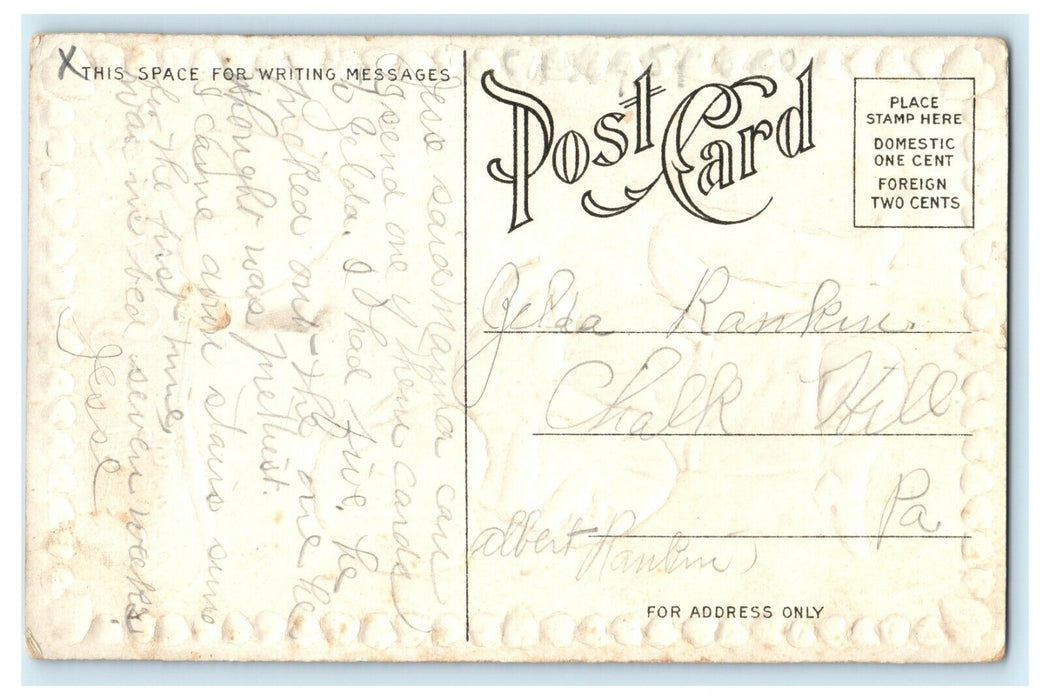 X THIS SPACE FOR WRITING MESSAGES
Jess said Mamma can
I send one of them cards
to Zelda. I had five. he
picked out the one he
thought was pretiist.
I came down stairs sun
for the first time,
was in bed seven weeks
Jesse
Post Card
PLACE
STAMP HERE
DOMESTIC
ONE CENT
FOREIGN
TWO CENTS
Zelda Rankin
Chalk Hill
Pa
Albert Rankin
FOR ADDRESS ONLY